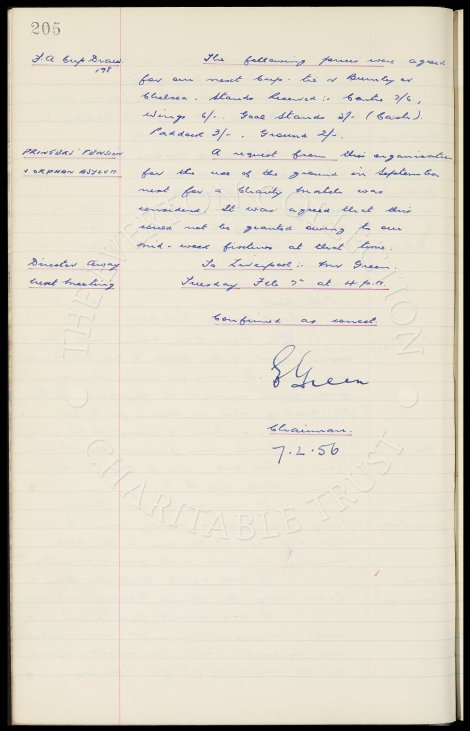 205
F A Cup Draw. The following prices were agreed
178 for our next Cup-tie v Burnley or
Chelsea. Stands Reserved:- Centre 7/6,
Wings 6/-. Goal Stands 5/- (Cash).
Paddock 3/-. Ground 2/-.
PRINTERS' PENSION A request from this organisation
& ORPHAN ASYLUM for the use of the ground in September
next for a Charity Match was
considered. It was agreed that this
could not be granted owing to our
mid-week fixtures at that time.
Director Away To Liverpool:- Mr Green.
Next Meeting Tuesday Feb 7th at 4 p.m.
Confirmed as correct.
Green
Chairman.
7.2.56
THE EVERTON COLLECTION
CHARITABLE TRUST